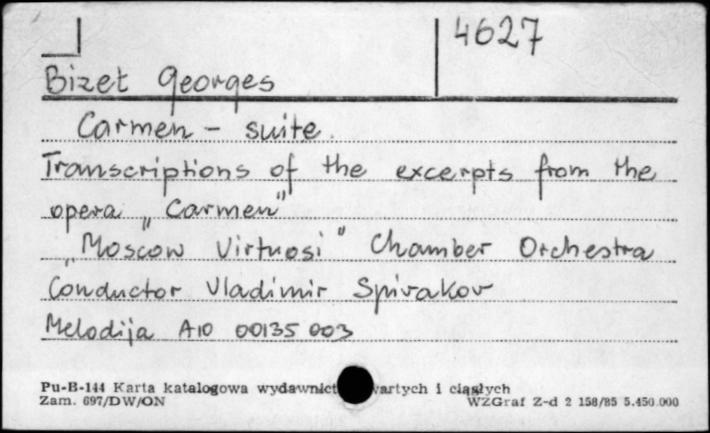 4627
Bizet Georges
Carmen - suite.
Transcriptions of the excerpts from the
opera „Carmen"
„Moscow Virtuosi" Chamber Orchestra
Conductor Vladimir Spivakov
Melodija A10 00135 003
Pu-B-144 Karta katalogowa wydawnict wartych i ciągłych
Zam. 697/DW/ON WZGraf Z-d 2 158/85 5.450.000